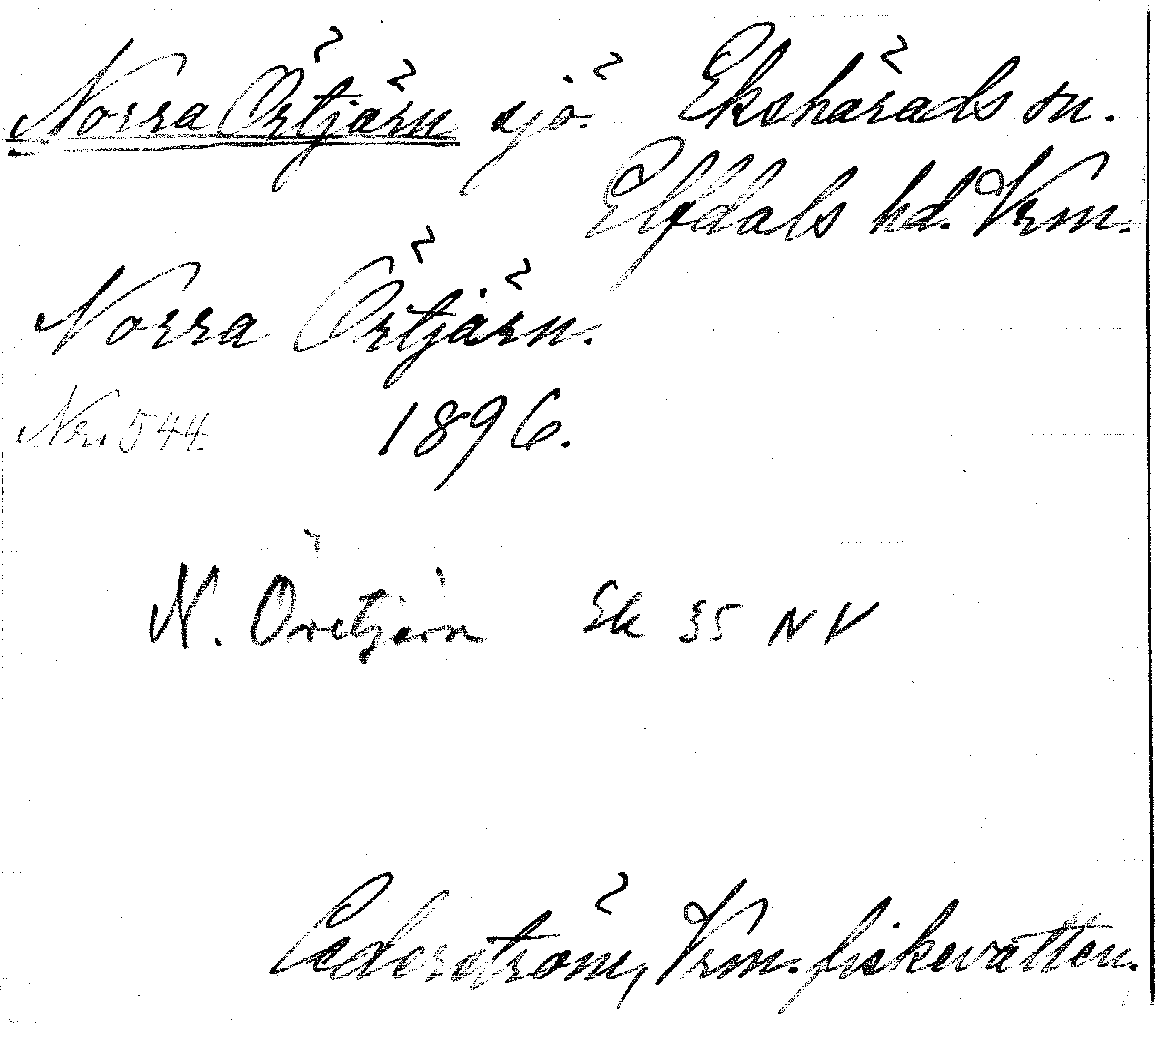 Norra Örtjärn sjö. Ekshärads sn.
Elfdals hd. Vrm.
Norra Örtjärn.
Nr. 544. 1896.
N. Örtjärn Ek 35 NV
Cederström, Vrm. fiskevatten.